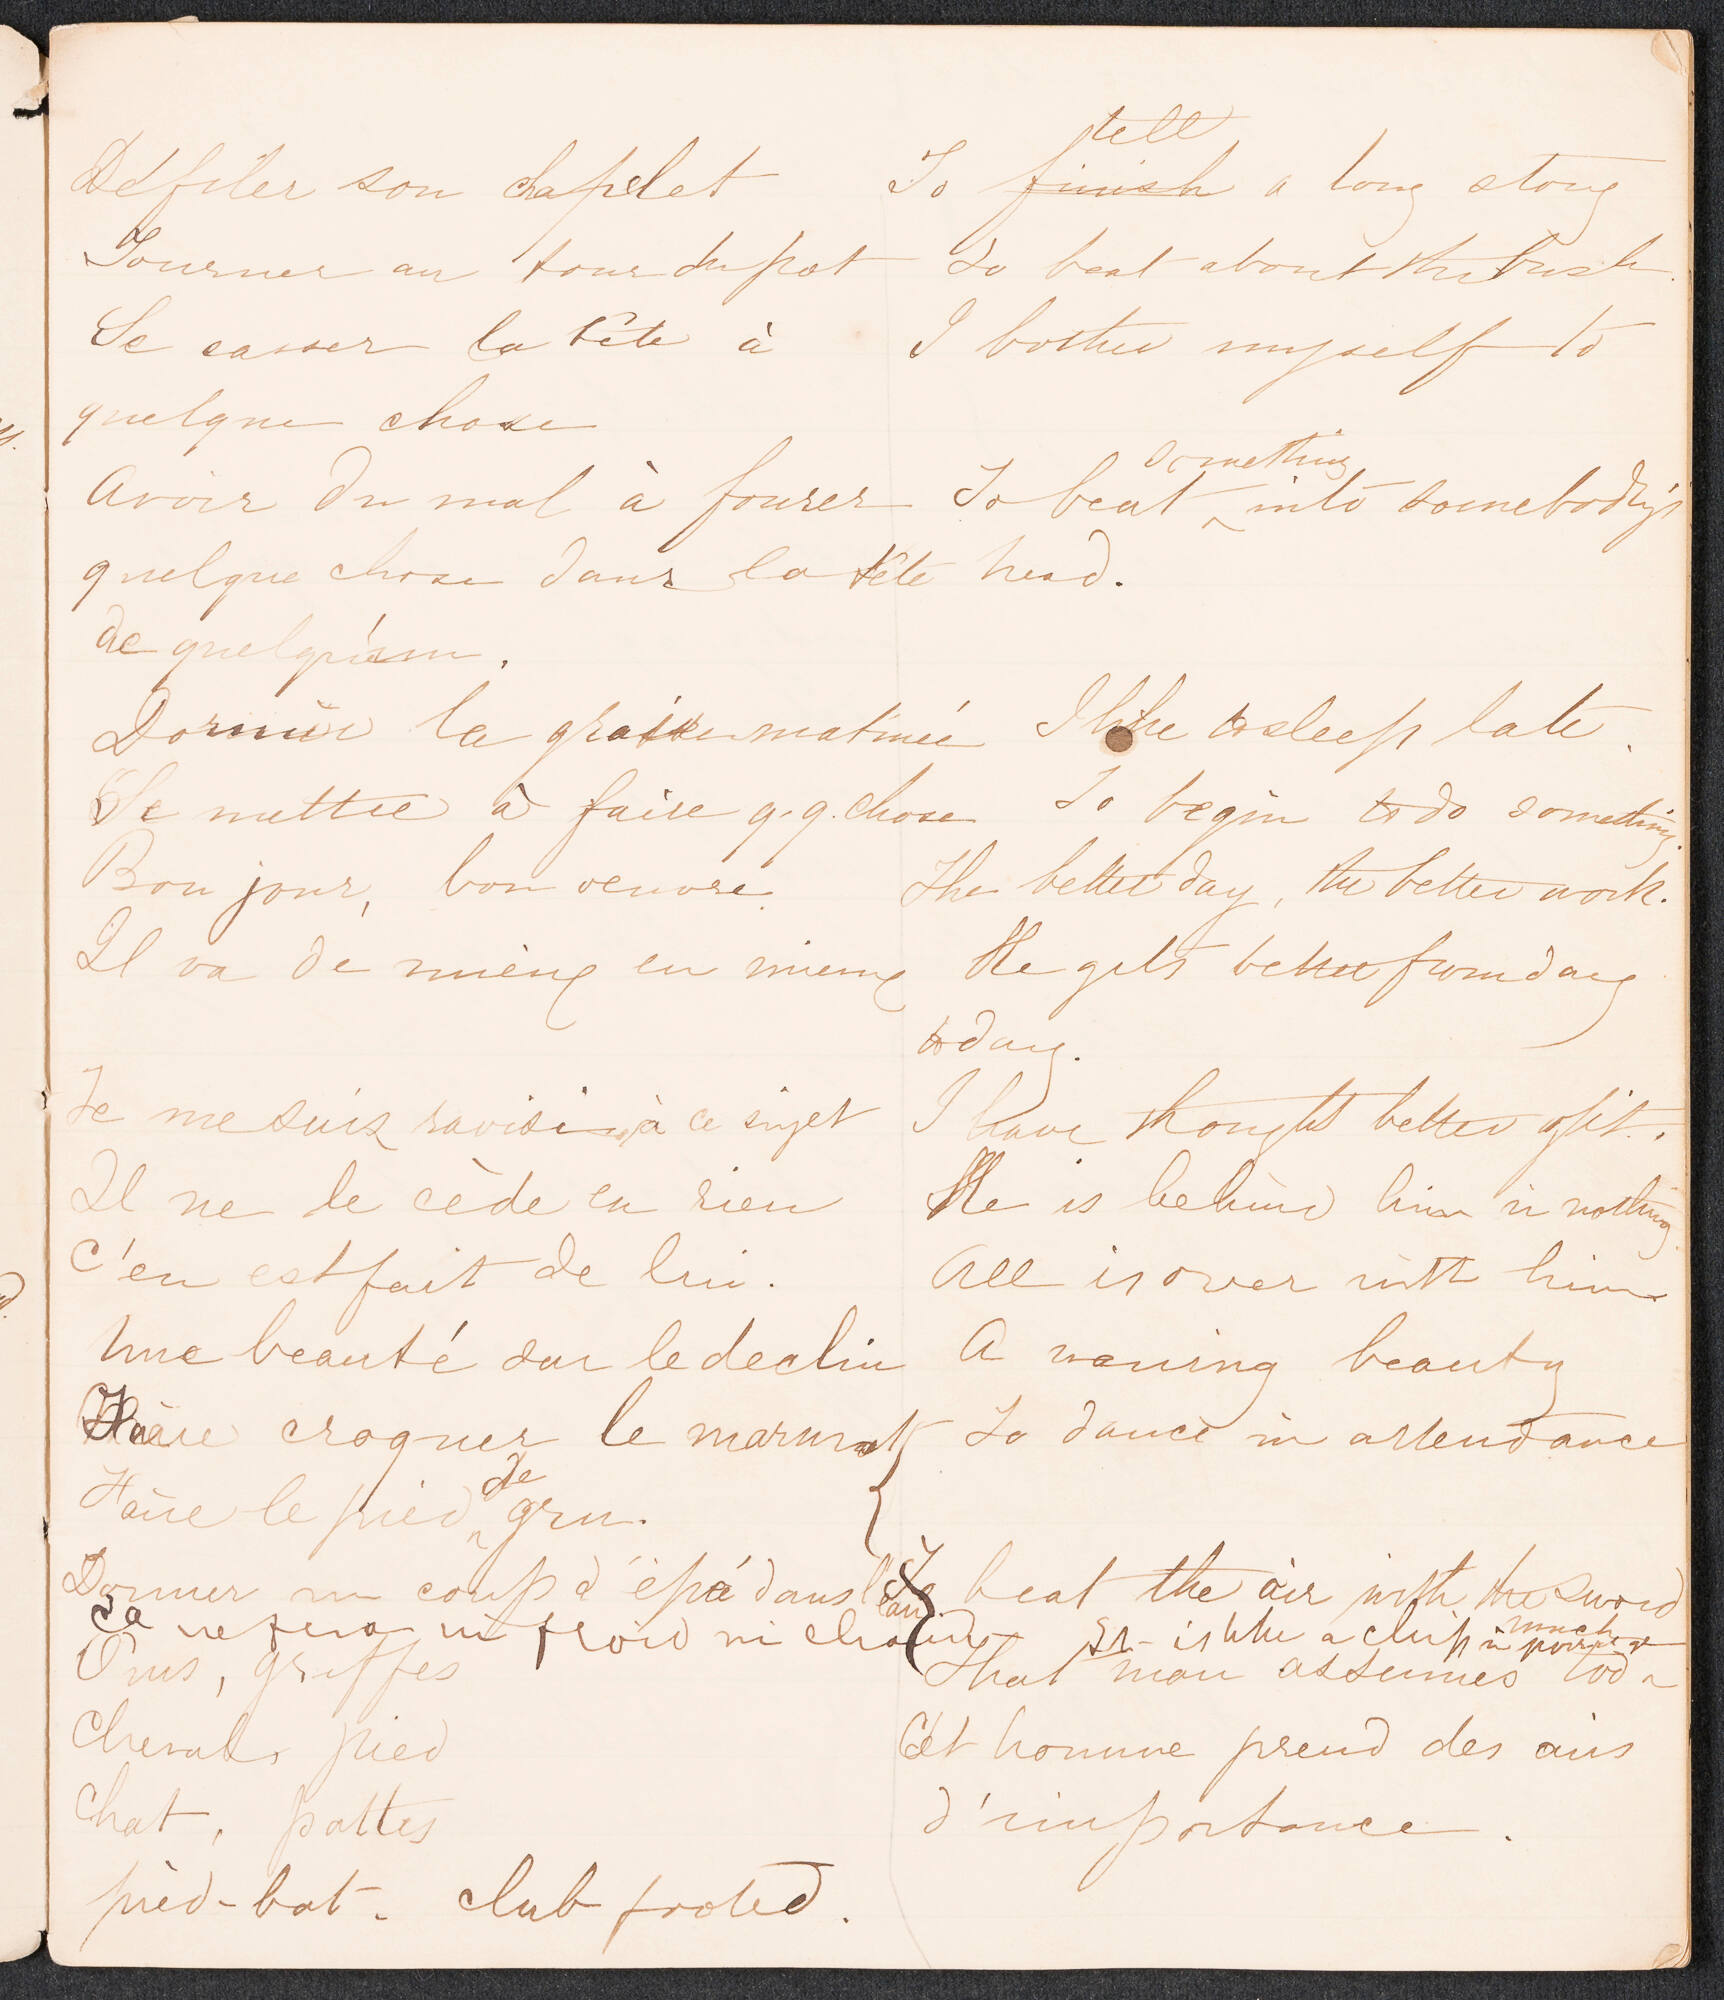 Défiler son chaplet To finish tell a long story
Tourner au tour du pot To beat about the bush.
Se casser la tête à I bother myself to
quelque chose
Avoir du mal à fourer To beat something into somebody's
quelque chose dans la tête head.
de quelqu'un.
Dormir la grasse matinée I like to sleep late.
Se mettre à faire q.q. chose To begin to do something.
Bon jour, bon oeuvre. The better day, the better work.
Il va de mieux en mieux He gets better from day
to day.
Je me suis ravisé à ce sujet I have thought better of it.
Il ne le cède en rien He is behind him in nothing.
C'en est fait de lui. All is over with him.
Une beauté sur le declin A waning beauty
Faire croquer le marmot To dance in attendance
Faire le pied de gru.
Donner un coup d'épée dans l'eau. To beat the air with the sword
Ca ne fera ni froid ni chaud It is like a chip in porridge
Ours, griffes That man assumes too much
Cheval, pied Cet homme prend des airs
Chat, pattes d'importance.
pied-bot. club footed.